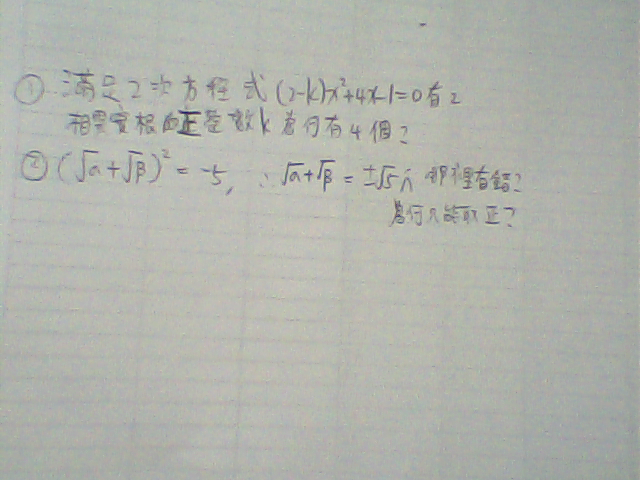 ① 滿足2次方程式(2-k)x²+4x-1=0有2
相異實根的正整數k為何有4個?
② (√α+√β)² = -5, ∴ √α+√β = ±√5 i 哪裡有錯?
為何只能取正?